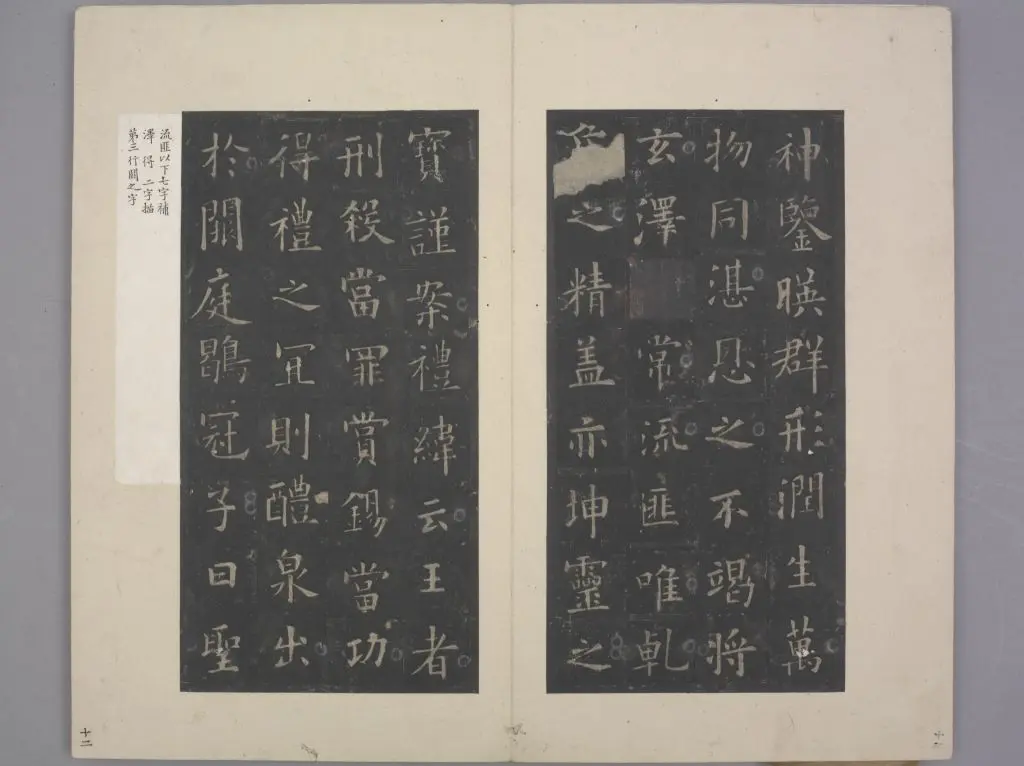 神鑒暎群形潤生萬
物同湛恩之不竭将
玄澤常流匪唯乹
之精盖亦坤靈之
十一
寶謹案禮緯云王者
刑殺當罪賞錫當功
得禮之冝則醴泉出
於闕庭鶡冠子曰聖
流匪以下七字補
澤得二字描
第三行闕之字
十二